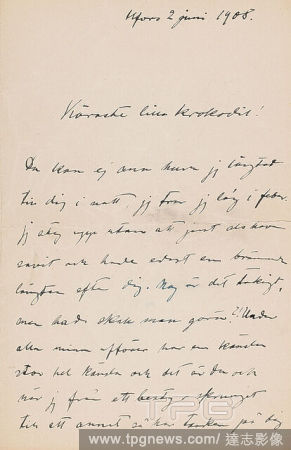 Hfors 2 juni 1908.
Käraste lilla krokodil!
Du kan ej ana huru jag längtat
till dig i natt, jag tror jag låg i feber.
jag steg upp utan att just ha
sovit och hade endast en brännande
längtan efter dig. Nog är det tokigt,
men hvad skall man göra? Under
alla mina affärer har en känsla
stor hel känsla och det är du och
när jag från ett bestyr
till ett annat så har tanken på dig
TPG
www.tpgnews.com / 達志影像